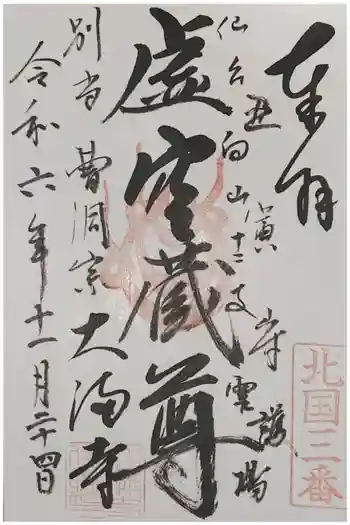 奉拝
仙台白山十二支守霊場
丑 寅
虚空蔵尊
別当 曹洞宗 大満寺
令和六年十一月二十四日
北国三番